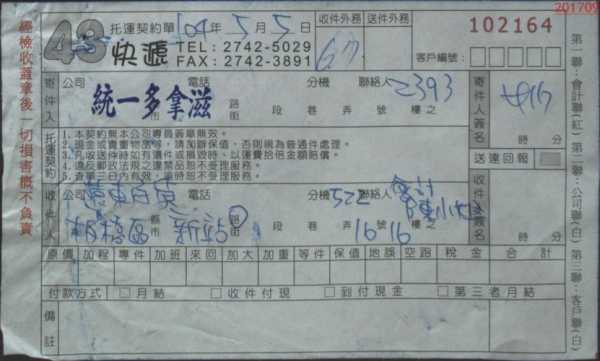 201709
43 快遞
托運契約單 104年5月5日
TEL: 2742-5029
FAX: 2742-3891
收件外務 送件外務
102164
客戶編號:
寄件人
公司 電話 分機 聯絡人 2393
統一多拿滋
縣市 路街 段 巷 弄 號 樓之
寄件人簽名
時 分
托運契約
1.本契約需本公司專員簽章無效。
2.現金或貴重物品等,請加辦保值,否則視為普通件處理。
3.凡收送件時如有遺失或損毀時,以運費拾倍金額賠償。
4.違反郵政法規之違禁品恕不受理服務。
5.查單三日內有效,逾時恕不受理服務。
送達回報
收件人
公司 遠東百貨 電話 分機 522 聯絡人 會計 陳小姐
板橋區 縣市 新站 路街 段 巷 弄 16 號 16 樓之
收件人簽名
時 分
原價 加程 專件 加班 來回 加大 加重 等件 保值 地誤 空跑 稅金 合計
付款方式 □月結 □收件付現 □到付現金 □第三者月結
備註
經檢收蓋章後一切損害概不負責
第一聯:會計聯(紅) 第二聯:公司聯(白) 第三聯:客戶聯(白)